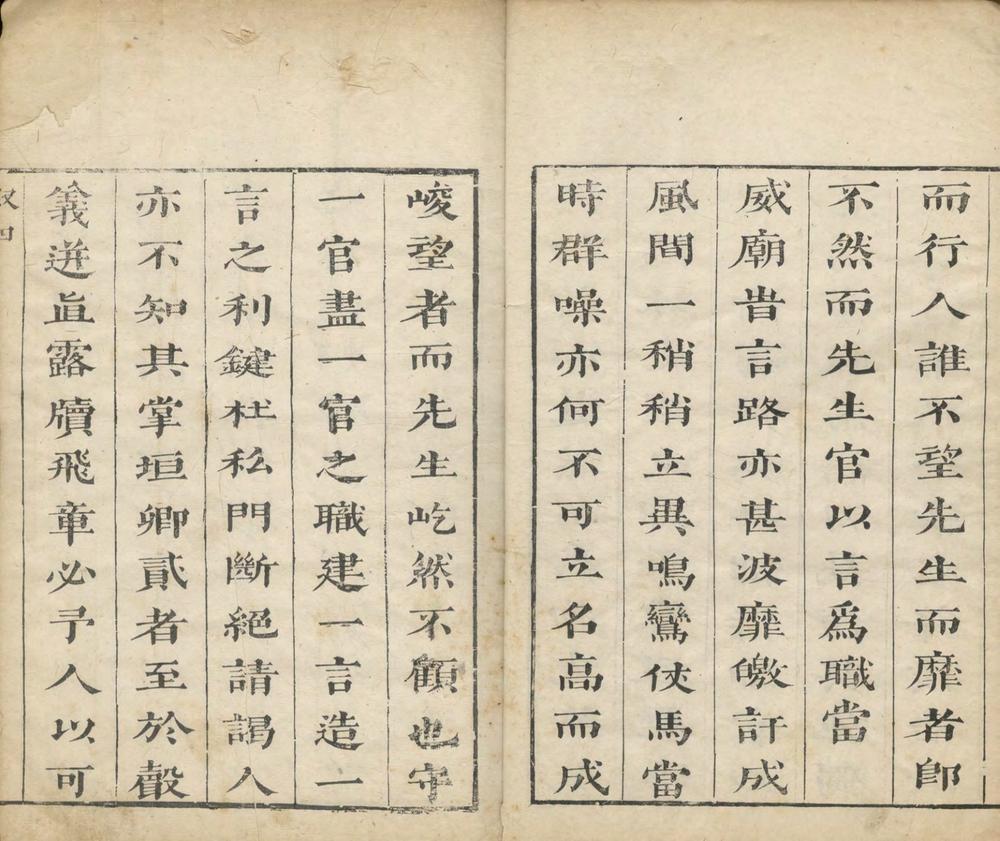 而行人誰不望先生而靡者卽
不然而先生官以言爲職當
威廟旹言路亦甚波靡皦訐成
風間一稍稍立異鳴鸞伎馬當
時群噪亦何不可立名高而成
峻望者而先生屹然不顧也守
一官盡一官之職建一言造一
言之利鍵杜私門斷絕請謁人
亦不知其掌垣卿貳者至於轂
義迸眞露牘飛章必予人以可
叙四